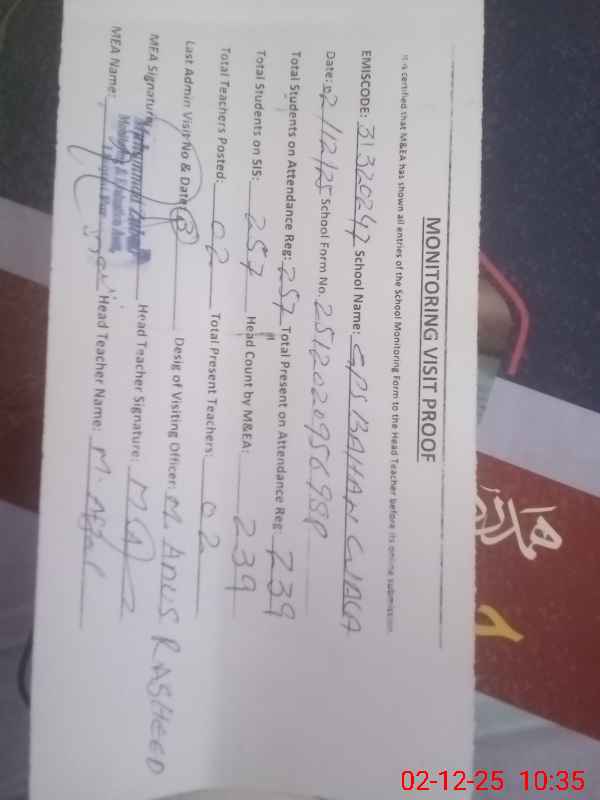 MONITORING VISIT PROOF
It is certified that M&EA has shown all entries of the School Monitoring Form to the Head Teacher before its online submission.
EMISCODE: 31320247 School Name: GPS BAHAN WALA
Date: 02/12/25 School Form No. 2512020956958
Total Students on Attendance Reg: 257 Total Present on Attendance Reg: 239
Total Students on SIS: 257 Head Count by M&EA: 239
Total Teachers Posted: 02 Total Present Teachers: 02
Last Admin Visit No & Date: Desig of Visiting Officer: M. ANUS RASHEED
MEA Signature: Head Teacher Signature:
MEA Name: Head Teacher Name: M. Afzal
02-12-25 10:35